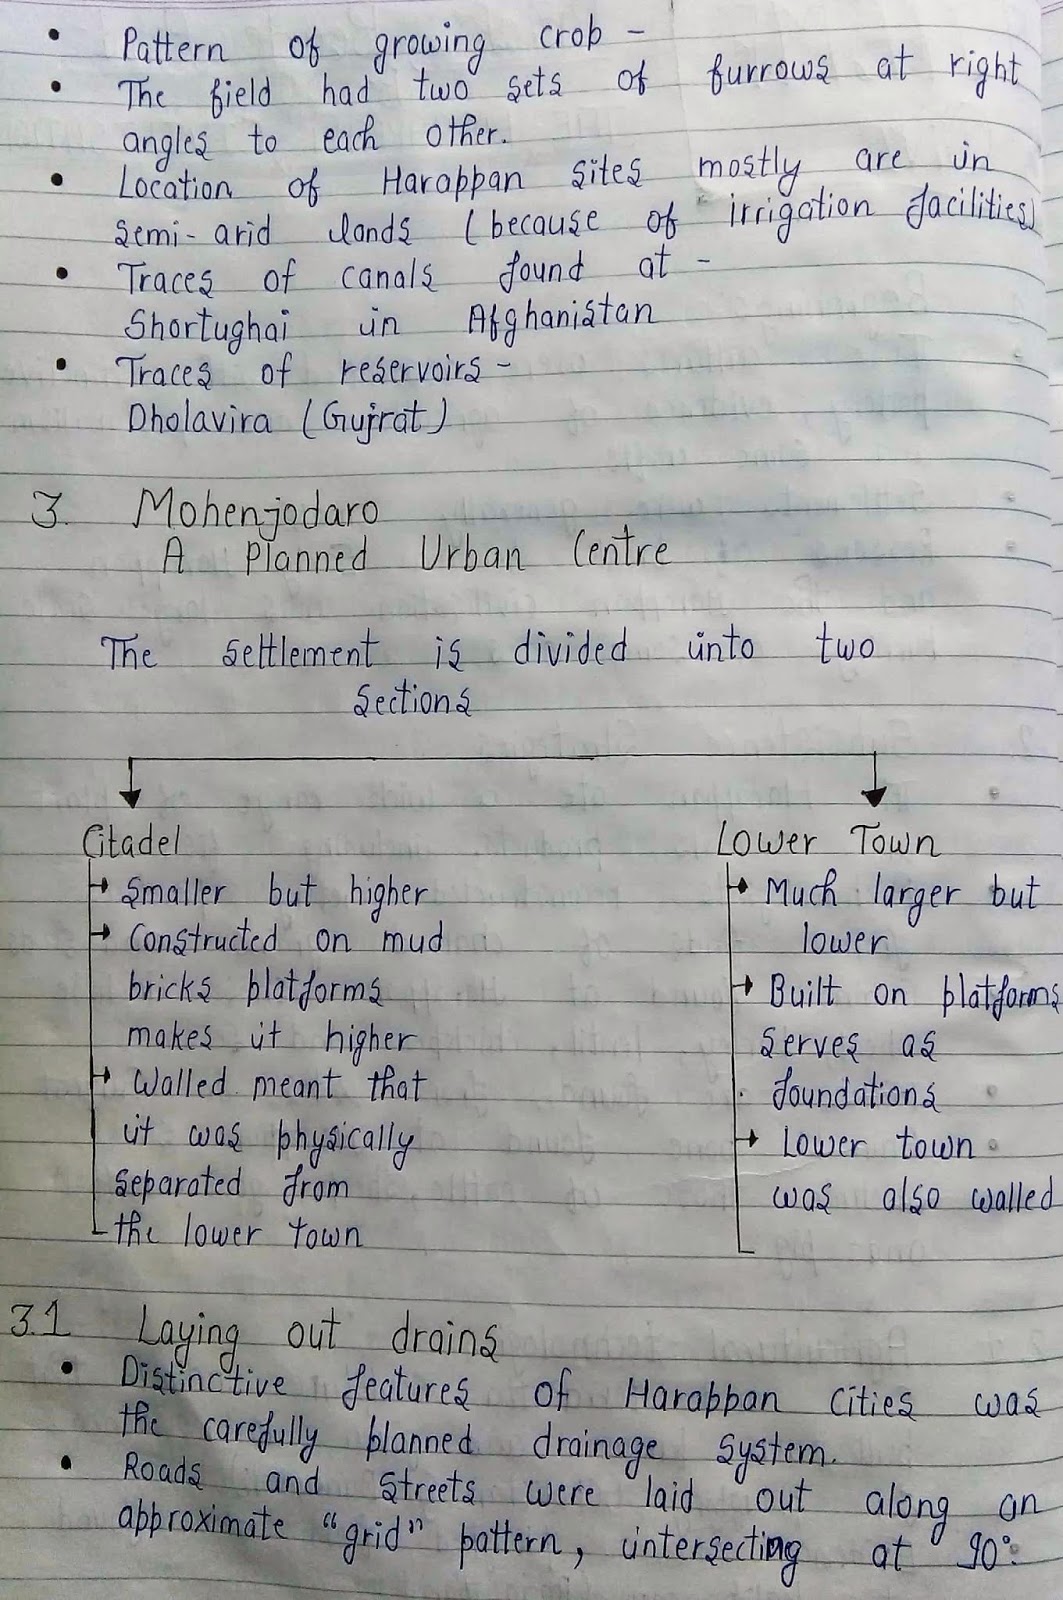 • Pattern of growing crop -
• The field had two sets of furrows at right
angles to each other.
• Location of Harappan sites mostly are in
semi-arid lands (because of irrigation facilities)
• Traces of canals found at -
Shortughai in Afghanistan
• Traces of reservoirs -
Dholavira (Gujrat)
3. Mohenjodaro
A Planned Urban Centre
The settlement is divided into two
sections
Citadel
→ Smaller but higher
→ Constructed on mud
bricks platforms
makes it higher
→ Walled meant that
it was physically
separated from
the lower town
Lower Town
→ Much larger but
lower
→ Built on platforms
serves as
foundations
→ Lower town
was also walled
3.1 Laying out drains
• Distinctive features of Harappan Cities was
the carefully planned drainage system.
• Roads and streets were laid out along an
approximate "grid" pattern, intersecting at 90°.